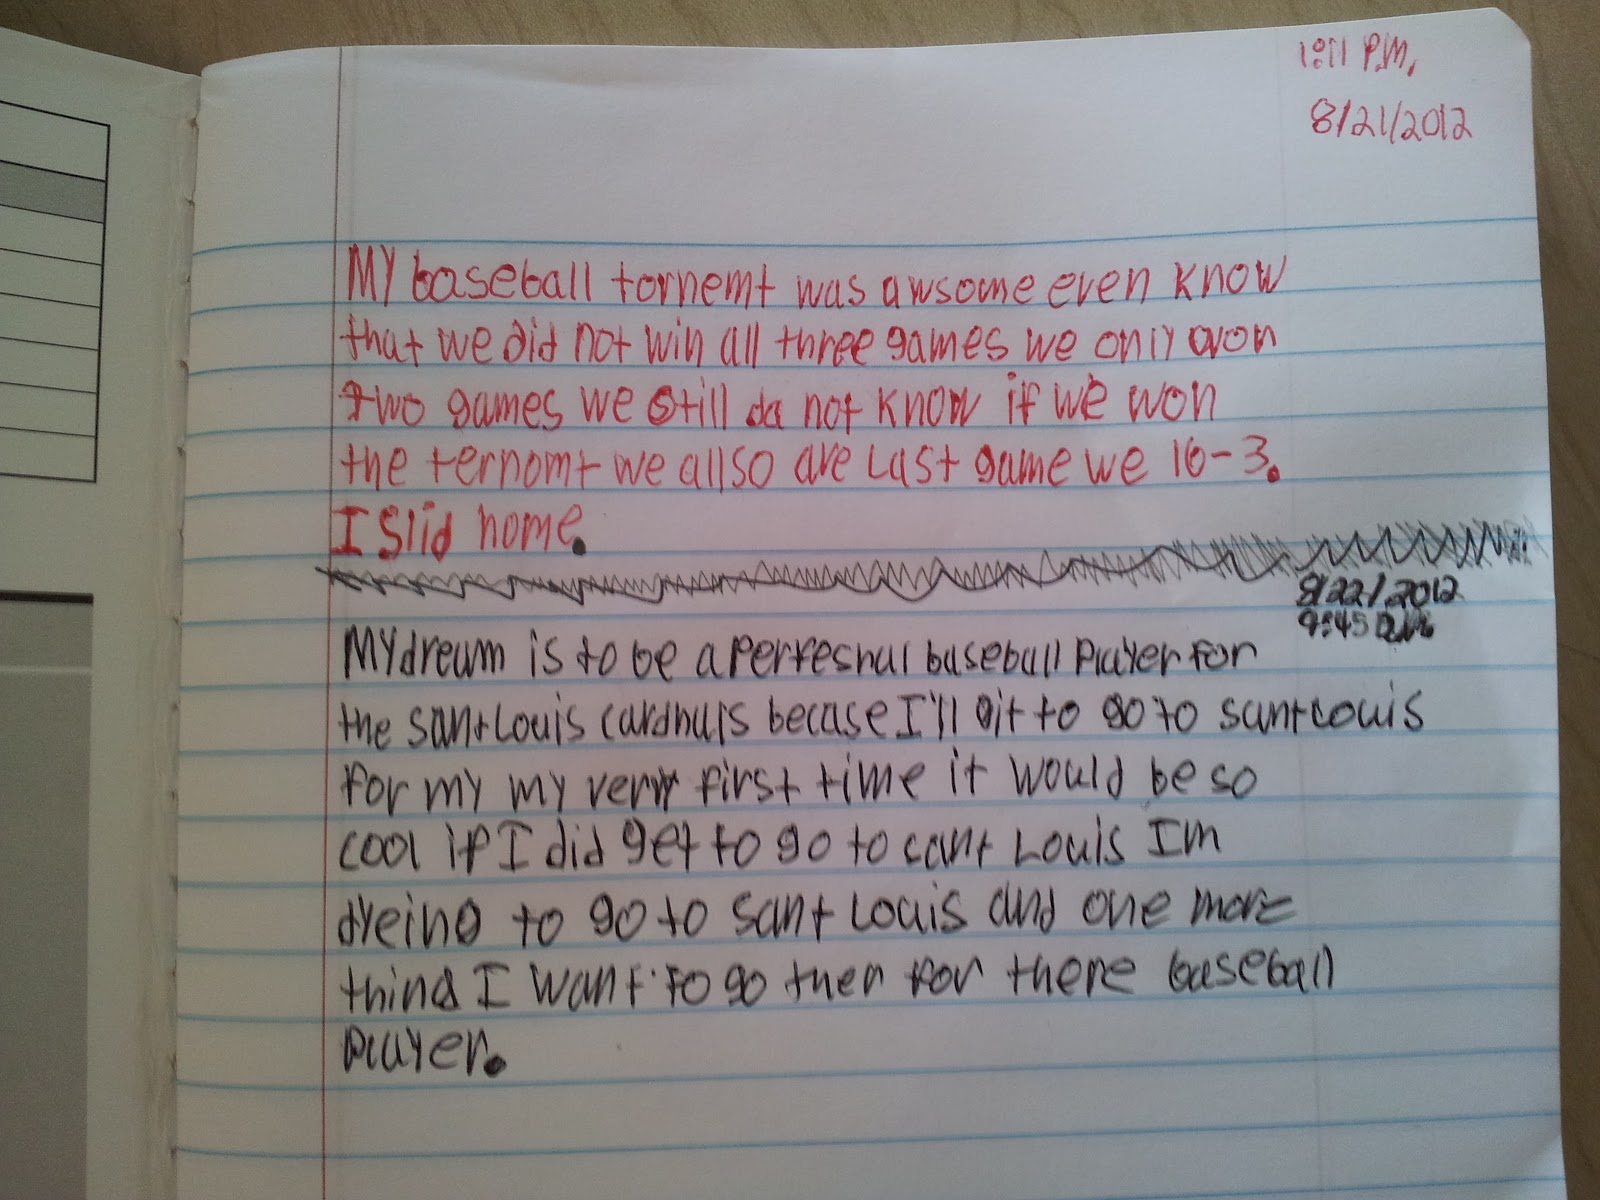 1:11 P.M,
8/21/2012
MY baseball tornemt was awsome even know
that we did not win all three games we only won
two games we still do not know if we won
the ternomt we allso are Last game we 16-3.
I slid home.
8/22/2012
9:45
My dream is to be a perfeshal baseball player for
the sant Louis cardnals becase I'll git to go to sant Louis
for my my very first time it would be so
cool if I did get to go to sant Louis Im
dyeing to go to sant Louis and one more
thing I want to go ther for there baseball
player.